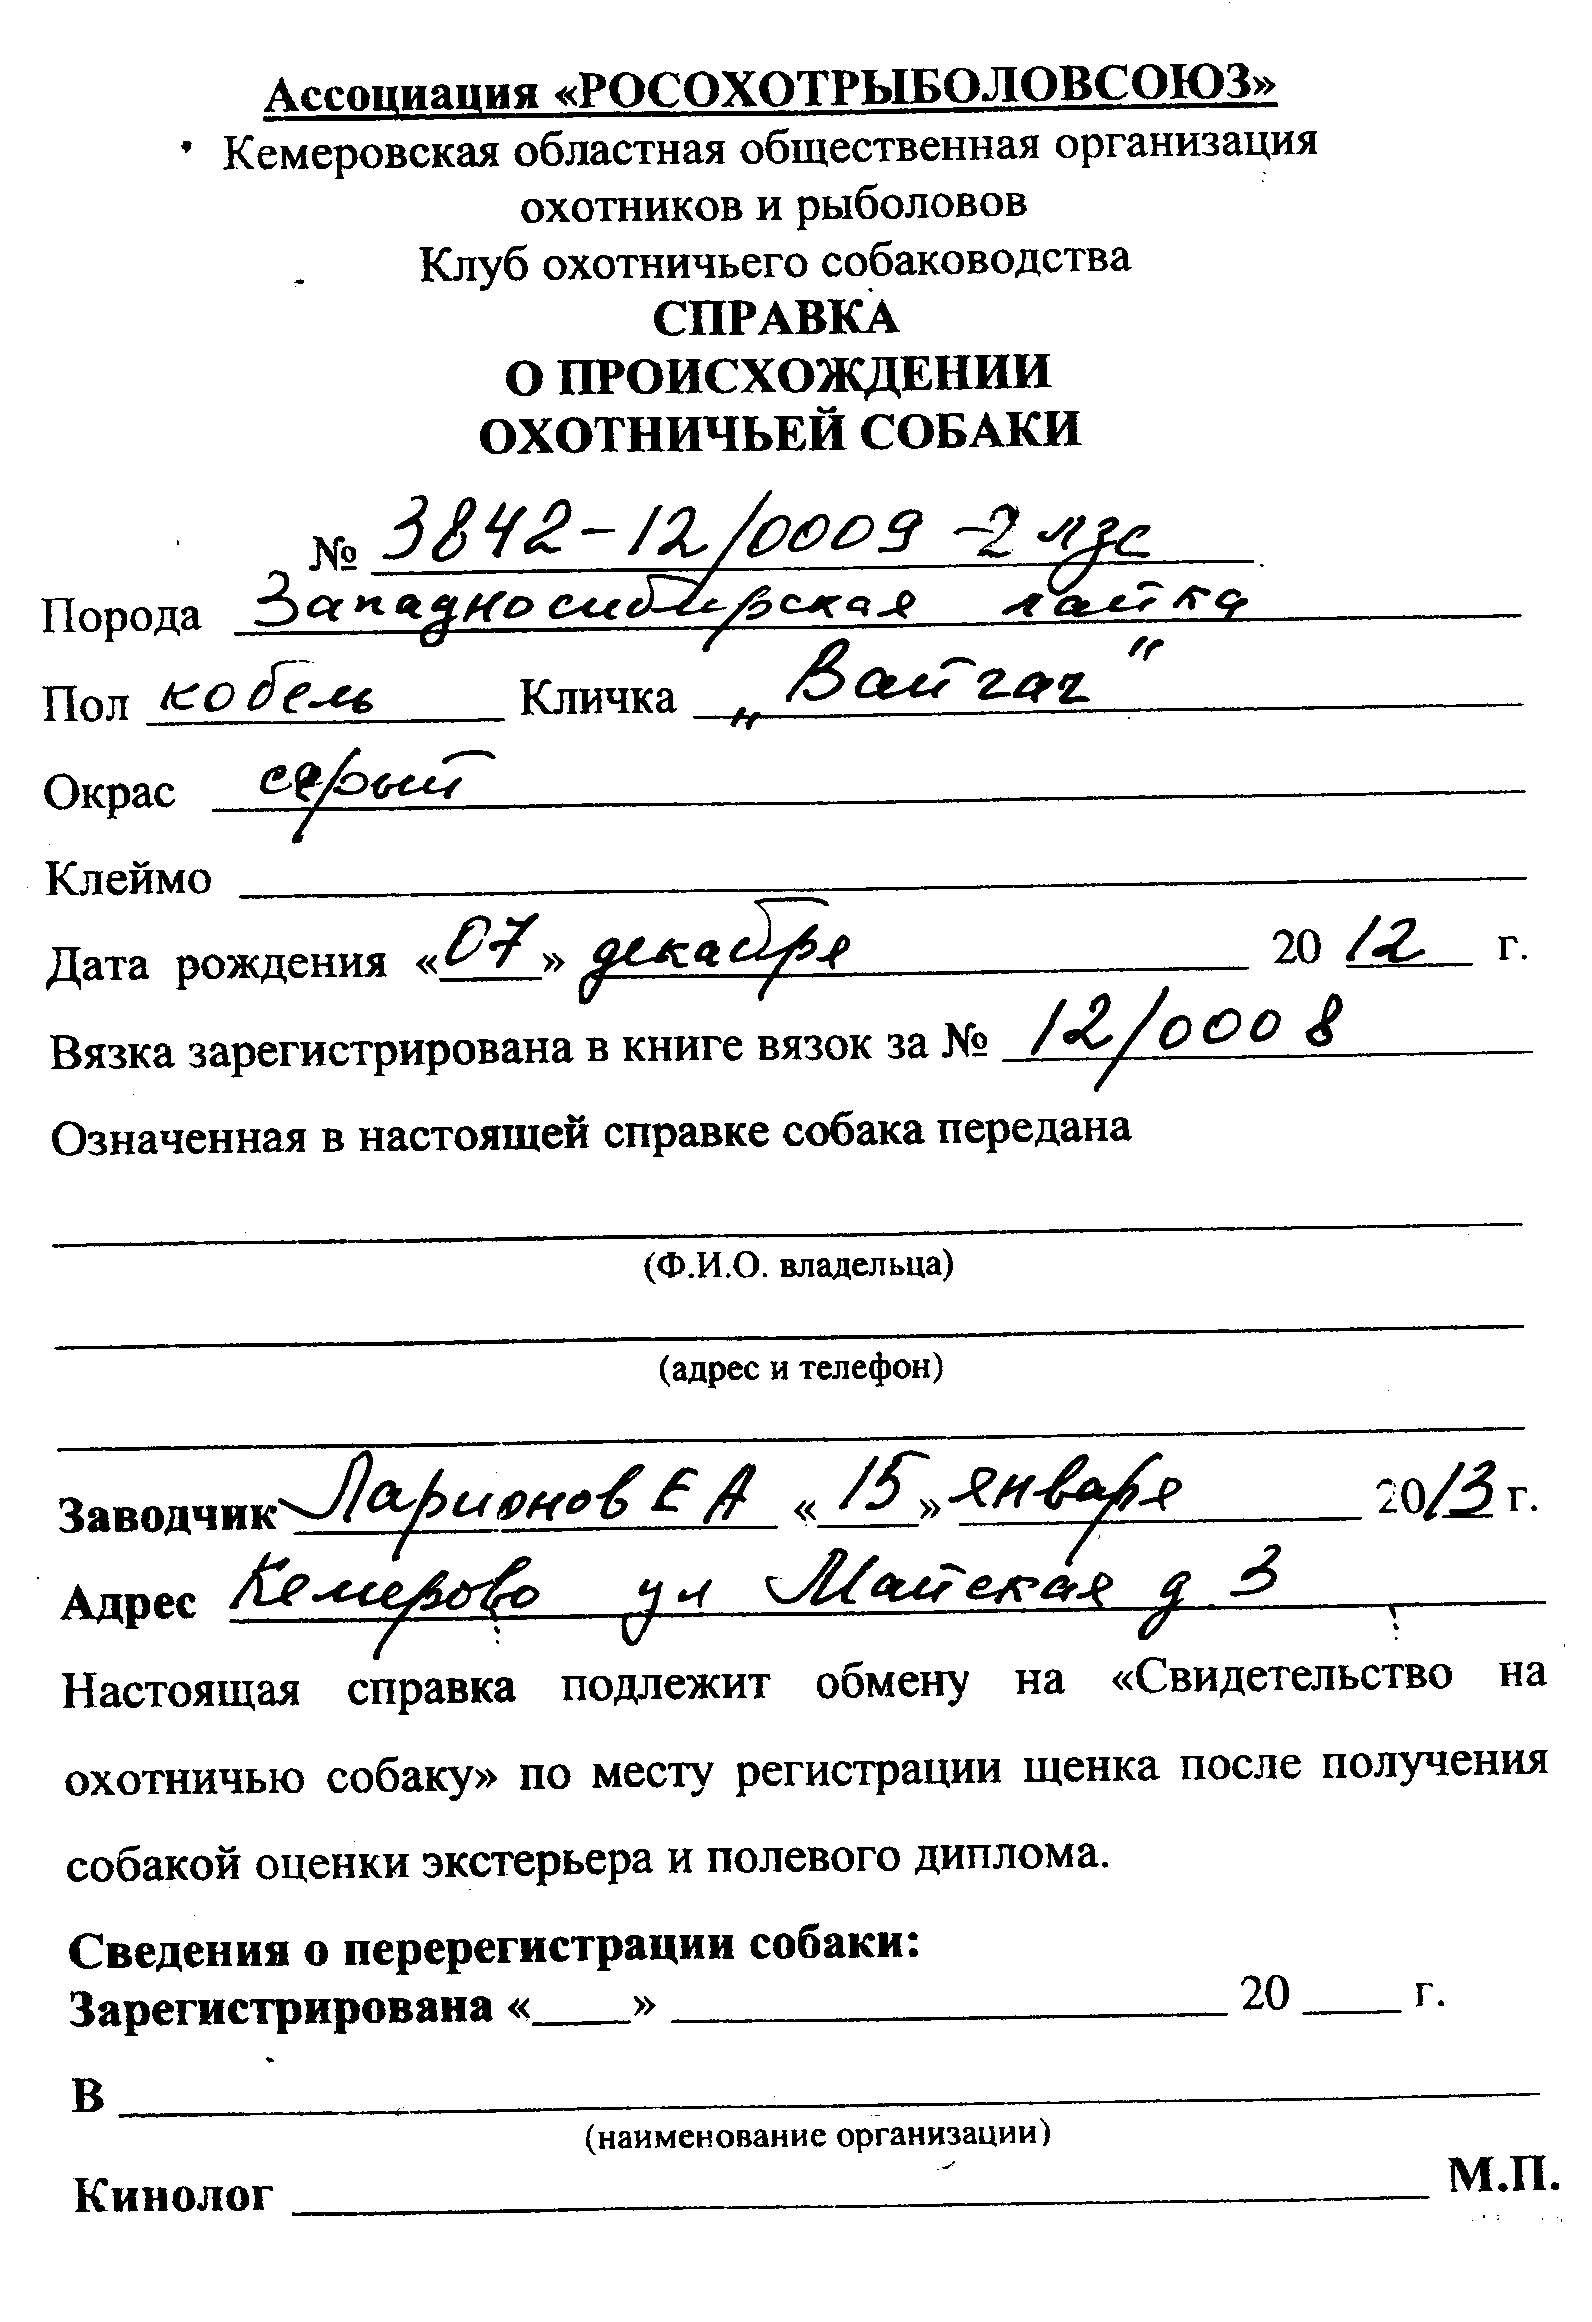 Ассоциация «РОСОХОТРЫБОЛОВСОЮЗ»
Кемеровская областная общественная организация
охотников и рыболовов
Клуб охотничьего собаководства
СПРАВКА
О ПРОИСХОЖДЕНИИ
ОХОТНИЧЬЕЙ СОБАКИ
№ 3842-12/0009-2лзс
Порода Западносибирская лайка
Пол кобель Кличка „Вайгач"
Окрас серый
Клеймо
Дата рождения «07» декабря 2012 г.
Вязка зарегистрирована в книге вязок за № 12/0008
Означенная в настоящей справке собака передана
(Ф.И.О. владельца)
(адрес и телефон)
Заводчик Ларионов Е А «15» января 2013 г.
Адрес Кемерово ул Майская д 3
Настоящая справка подлежит обмену на «Свидетельство на
охотничью собаку» по месту регистрации щенка после получения
собакой оценки экстерьера и полевого диплома.
Сведения о перерегистрации собаки:
Зарегистрирована «____» ____ 20 ____ г.
В
(наименование организации)
Кинолог М.П.